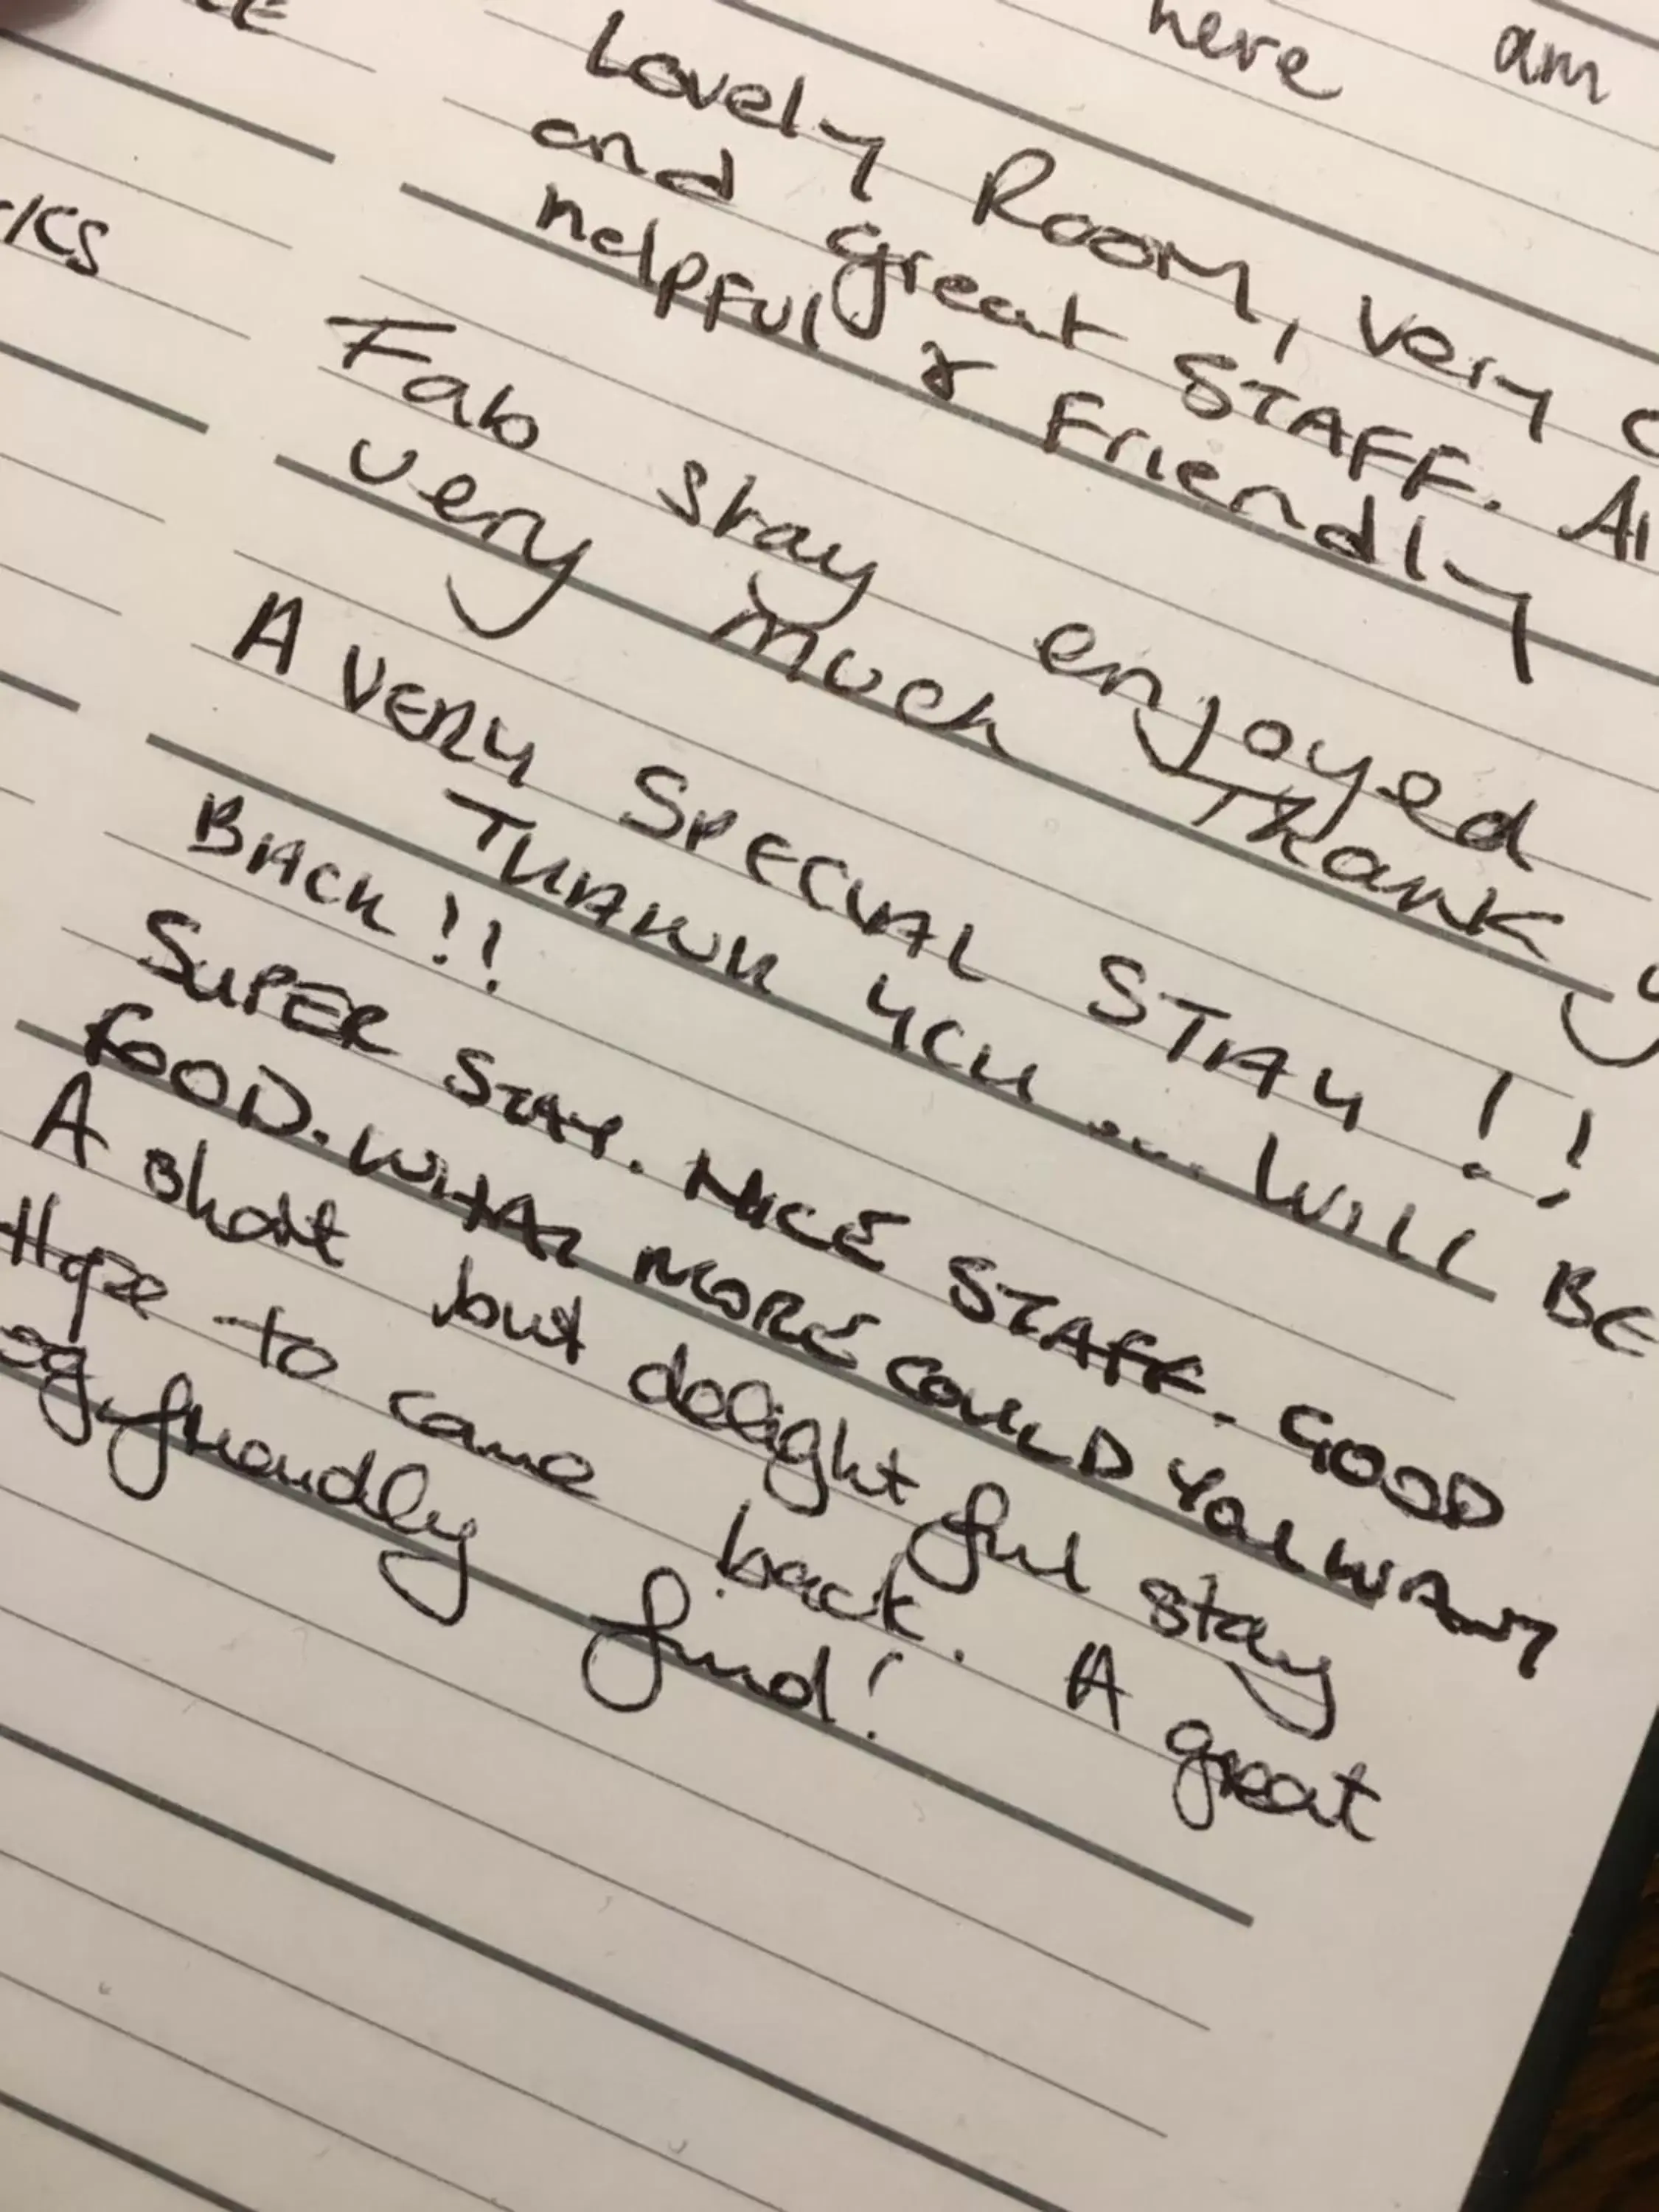 here am
Lovely Room, very
and great STAFF.
helpful & Friendly
Fab stay enjoyed
very much Thank
A VERY SPECIAL STAY!!
THANK YOU... WILL BE
BACK!!
SUPER STAY. NICE STAFF. GOOD
FOOD. WHAT MORE COULD YOU WANT
A short but delightful stay
Hope to come back. A great
friendly find!